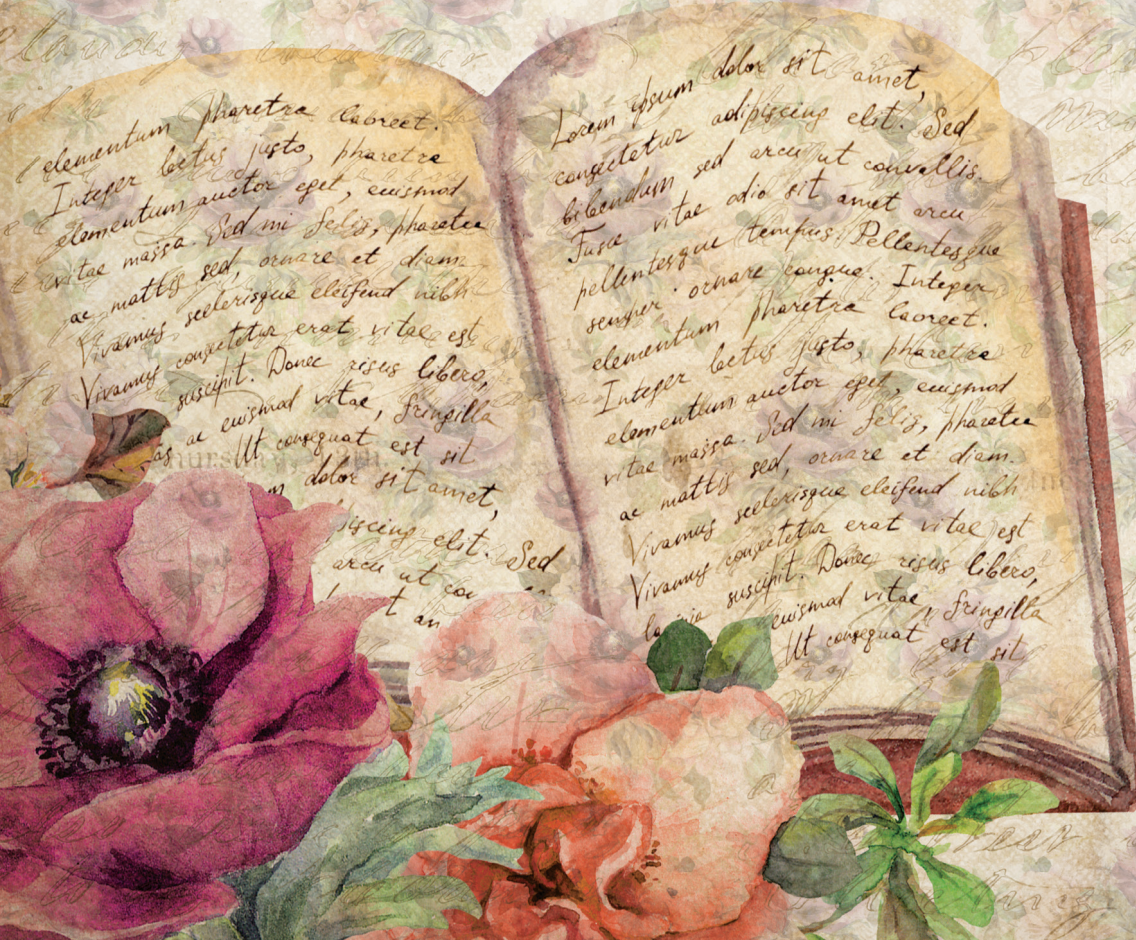 elementum pharetra laoreet.
Integer lectus justo, pharetra
elementum auctor eget, euismod
vitae massa. Sed mi felis, pharetra
ac mattis sed, ornare et diam
Vivamus scelerisque eleifend nibh
consectetur erat vitae est
Vivamus suscipit. Donec risus libero,
as ac euismod vitae, fringilla
Ut consequat est sit
m dolor sit amet,
piscing elit. Sed
arcu ut con
t am
Lorem ipsum dolor sit amet,
consectetur adipiscing elit. Sed
bibendum sed arcu ut convallis.
Fusce vitae odio sit amet arcu
pellentesque tempus. Pellentesque
semper ornare congue. Integer
elementum pharetra laoreet.
Integer lectus justo, pharetra
elementum auctor eget, euismod
vitae massa. Sed mi felis, pharetra
ac mattis sed, ornare et diam.
Vivamus scelerisque eleifend nibh
consectetur erat vitae est
Vivamus suscipit. Donec risus libero,
la ia euismod vitae, fringilla
Ut consequat est sit